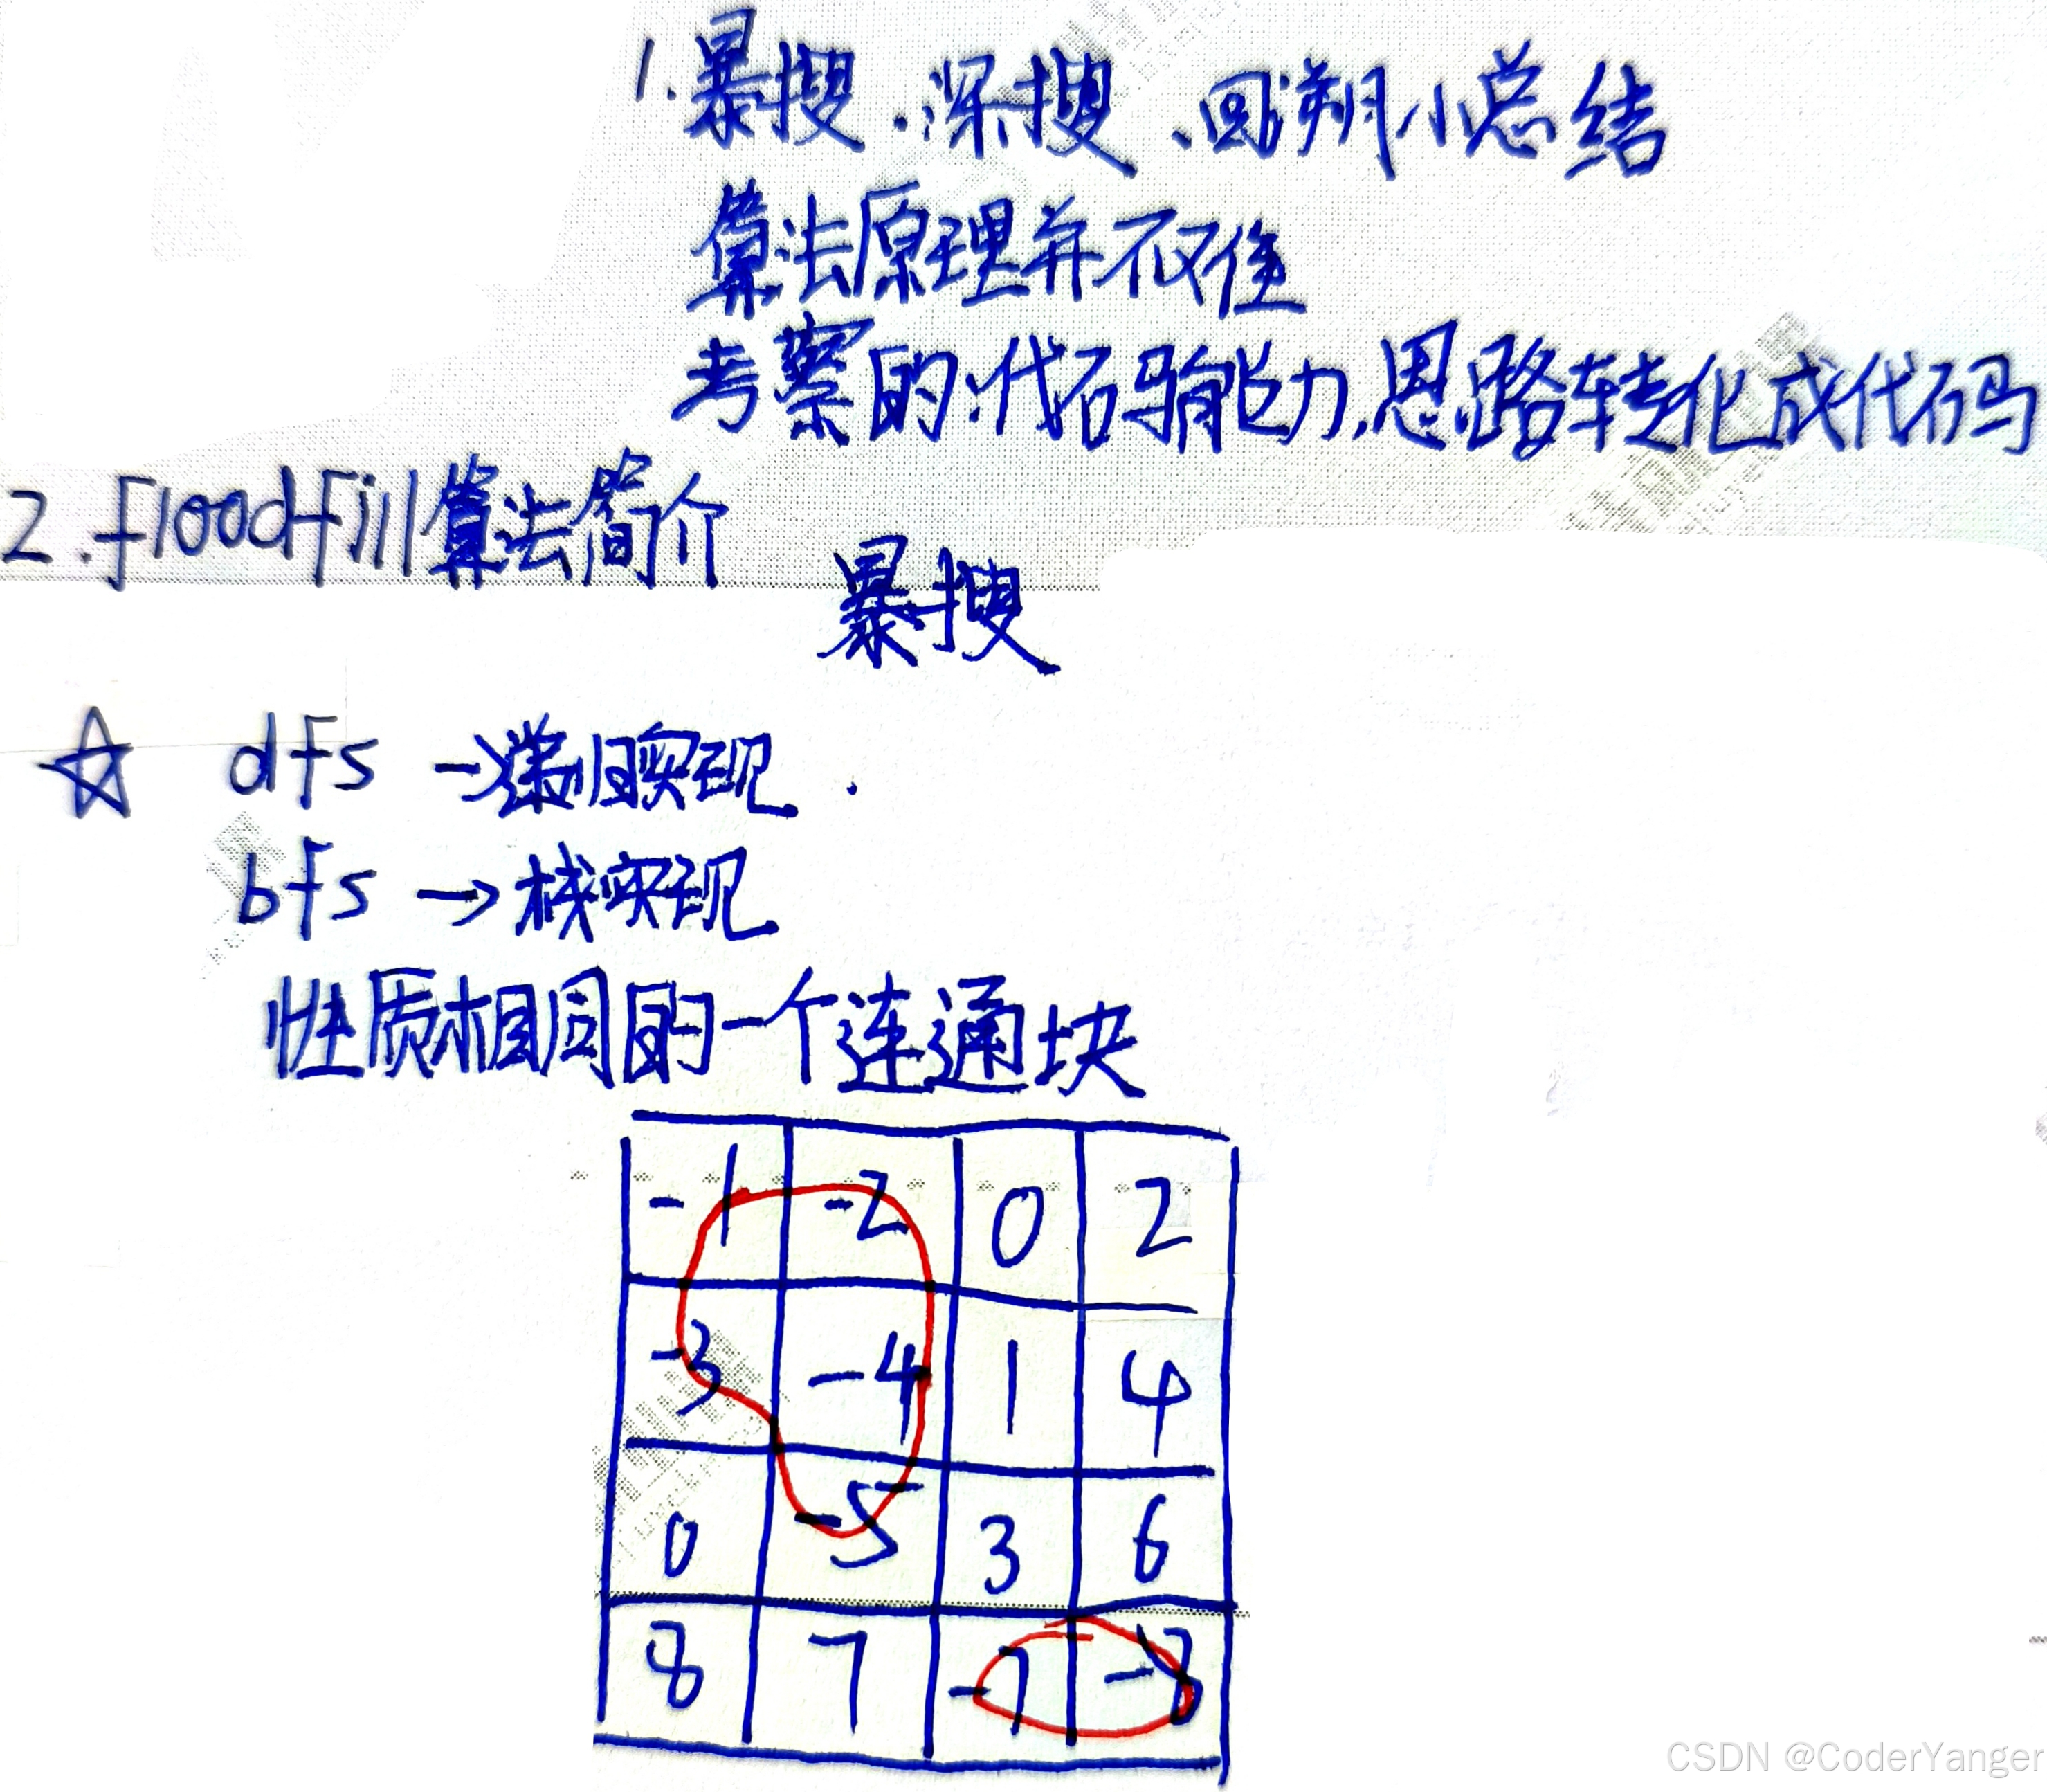 1.暴搜.深搜、回溯小总结
算法原理并不难
考察的:代码能力,思路转化成代码
2.floodfill算法简介
暴搜
☆ dfs →递归实现.
bfs →栈实现
性质相同的一个连通块
-1 -2 0 2
-3 -4 1 4
0 -5 3 6
8 7 -7 -8
CSDN @CoderYanger